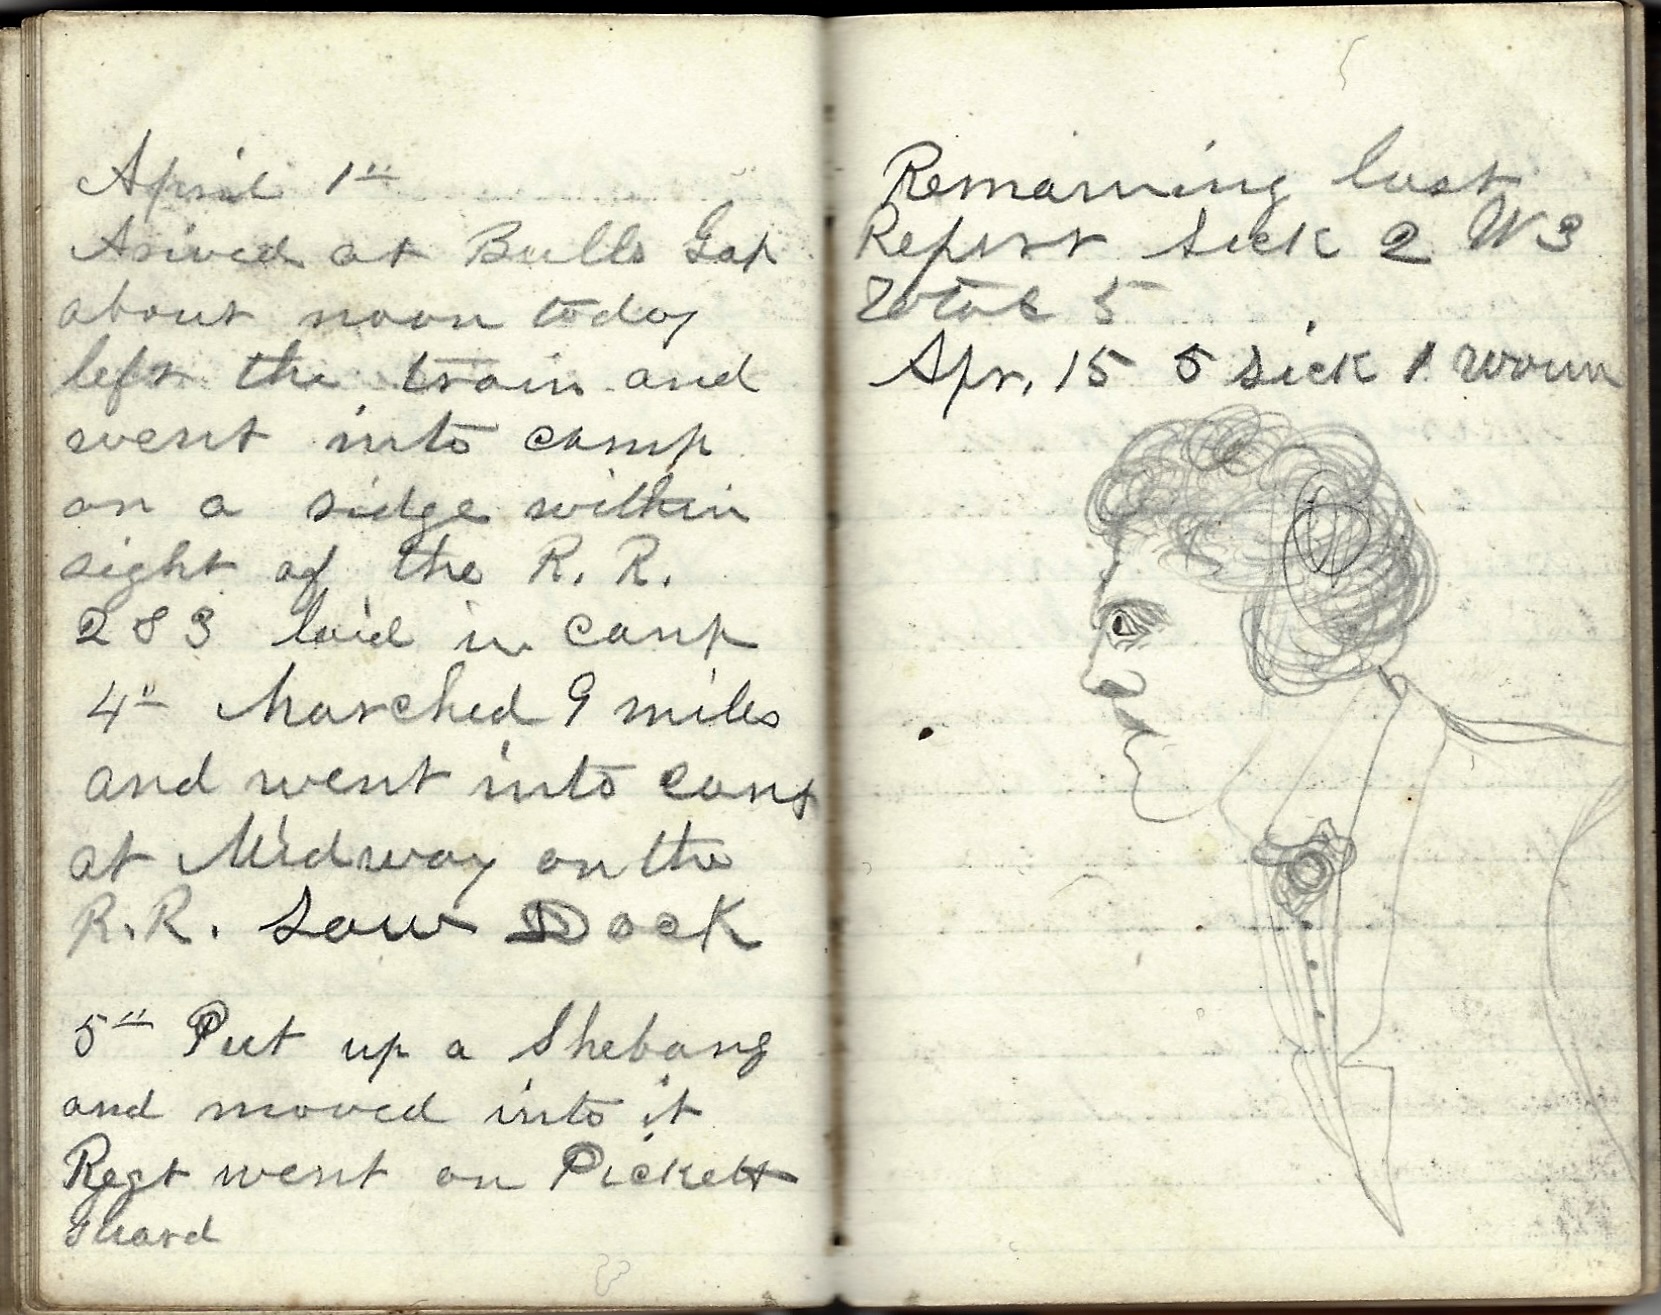 April 1"
Arived at Bulls Gap
about noon today
left the train and
went into camp
on a ridge within
sight of the R. R.
2 & 3 laid in camp
4" Marched 9 miles
and went into camp
at Midway on the
R.R. Saw Dock
5" Put up a Shebang
and moved into it
Regt went on Pickett
Guard
Remaining last
Report Sick 2 W 3
Total 5
Apr. 15 5 sick 1 Woun